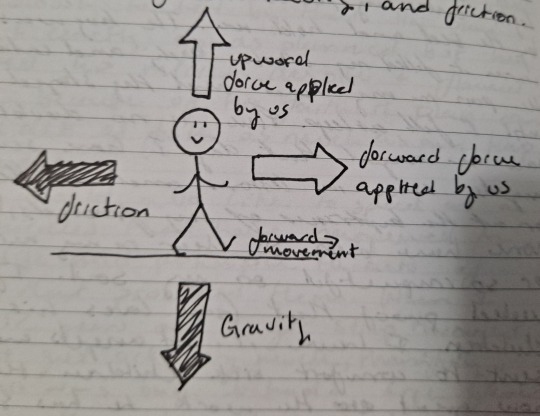 , and friction.
upward
force applied
by us
forward force
applied by us
friction
forward
movement
Gravity